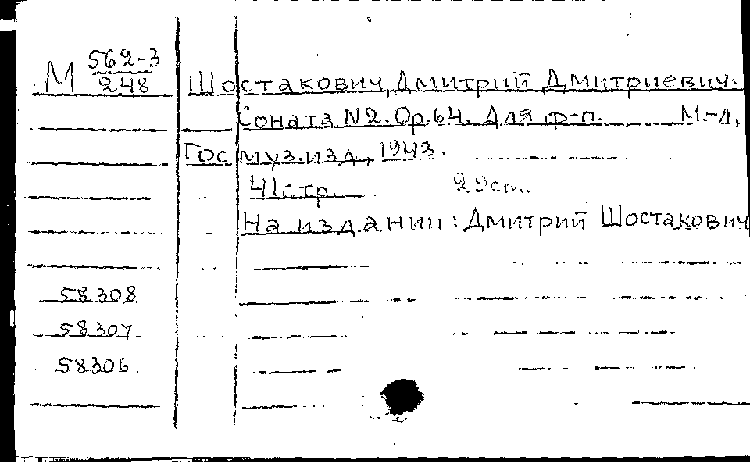 М 562-3
248
Шостакович, Дмитрий Дмитриевич.
Соната N2. Op. 64. Для ф-п. М.-Л,
Гос муз. изд., 1943.
41 стр. 29 cm.
На издании: Дмитрий Шостакович
58308
58307
58306